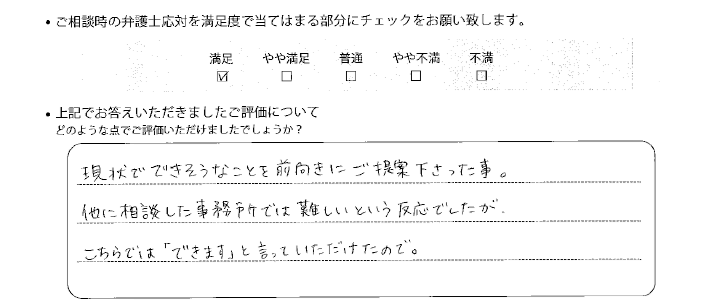 ・ご相談時の弁護士応対を満足度で当てはまる部分にチェックをお願い致します。
満足 やや満足 普通 やや不満 不満
☑ ☐ ☐ ☐ ☐
・上記でお答えいただきましたご評価について
どのような点でご評価いただけましたでしょうか？
現状でできそうなことを前向きにご提案下さった事。
他に相談した事務所では難しいという反応でしたが、
こちらでは「できます」と言っていただけたので。